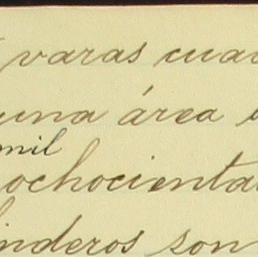 varas cuad
una área
mil
ochocienta
linderos son